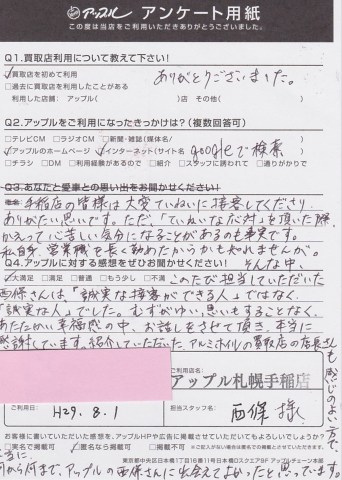 アップル アンケート用紙
この度は当店をご利用いただきありがとうございました。
Q1.買取店利用について教えて下さい!
✓買取店を初めて利用
ありがとうございました。
□過去に買取店を利用したことがある
利用した店舗: アップル( )店 その他( )
Q2.アップルをご利用になったきっかけは?(複数回答可)
□テレビCM □ラジオCM □新聞・雑誌(媒体名/ )
✓アップルのホームページ ✓インターネット(サイト名 googleで検索 )
□チラシ □DM □利用経験があるので □紹介 □スタッフに誘われて □通りがかりで
Q3.あなたと愛車との思い出をお聞かせください!
手稲店の皆様は大変ていねいに接客してくださり、
ありがたい思いです。ただ、「ていねいな応対」を頂いた際、
かえって心苦しい気分になることがあるのも事実です。
私自身、営業職を長く勤めたからかも知れませんが。
Q4.アップルに対する感想をぜひお聞かせください!
そんな中、
✓大満足 □満足 □普通 □もう少し □不満
このたび担当していただいた
西條さんは、「誠実な接客ができる人」ではなく、
「誠実な人」でした。むずがゆい思いもすることなく、
あたたかい幸福感の中、お話しをさせて頂き、本当に
感謝しています。紹介していただいたアルミホイルの買取店の店長さんも
感じのよい方で、
ご利用店名:
アップル札幌手稲店
ご利用日:
H29.8.1
担当スタッフ名:
西條 様
お客様に書いていただいた感想を、アップルHPや広告に掲載させていただいてもよろしいでしょうか?
□実名で掲載可 ✓匿名なら掲載可 □不可
東京都中央区日本橋1丁目16番11号日本橋Dスクエア9F アップルチェーン本部
本当に
何から何まで、アップルの西條さんに出会えてよかったと思っています。